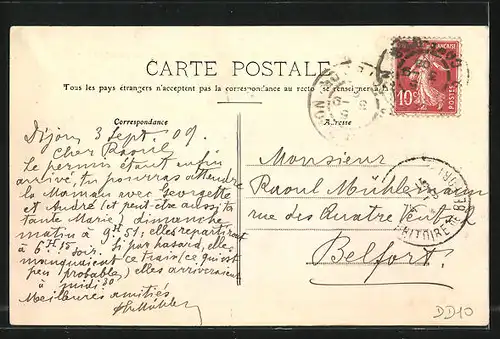 CARTE POSTALE
Tous les pays étrangers n'acceptent pas la correspondance au recto (se renseigner à la
Correspondance
Adresse
Dijon 3 Sept. 09.
Cher Raoul
Le permis étant enfin
arrivé, tu pourras attendre
la Maman avec Georgette
et André (et peut-être aussi ta
tante Marie) dimanche
matin à 9H51; elles repartiront
à 6H15 soir. Si par hasard, elles
manquaient ce train (ce qui est
peu probable) elles arriveraient
à midi 30
Meilleures amitiés
Monsieur
Raoul Mühlemann
rue des Quatre Vents
Belfort.
10c
POSTES
DD10